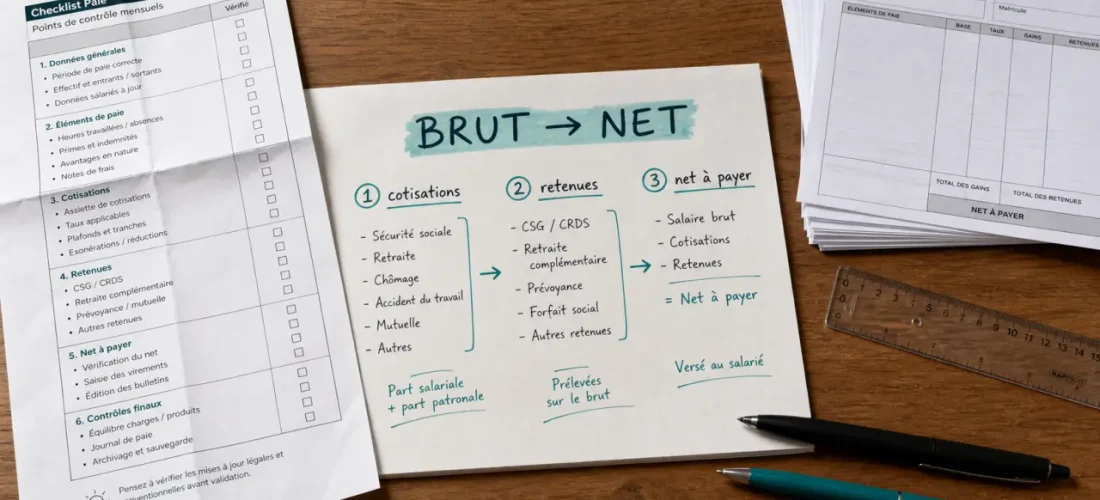 Checklist Paie
Points de contrôle mensuels
Vérifié
1. Données générales
• Période de paie correcte
• Effectif et entrants / sortants
• Données salariés à jour
2. Éléments de paie
• Heures travaillées / absences
• Primes et indemnités
• Avantages en nature
• Notes de frais
3. Cotisations
• Assiette de cotisations
• Taux applicables
• Plafonds et tranches
• Exonérations / réductions
4. Retenues
• CSG / CRDS
• Retraite complémentaire
• Prévoyance / mutuelle
• Autres retenues
5. Net à payer
• Vérification du net
• Saisie des virements
• Édition des bulletins
6. Contrôles finaux
• Équilibre charges / produits
• Journal de paie
• Archivage et sauvegarde
Pensez à vérifier les mises à jour légales et
avant validation.
BRUT → NET
1 cotisations
- Sécurité sociale
- Retraite
- Chômage
- Accident du travail
- Mutuelle
- Autres
Part salariale
+ part patronale
2 retenues
- CSG / CRDS
- Retraite
complémentaire
- Prévoyance
- Forfait social
- Autres retenues
Prélevées
sur le brut
3 net à payer
- Salaire brut
- Cotisations
- Retenues
= Net à payer
Versé au salarié
Matricule
ÉLÉMENTS DE PAIE
BASE
TAUX
GAINS
RETENUES
TOTAL DES GAINS
TOTAL DES RETENUES
NET À PAYER
0 1 2 3 4 5 6 7 8 9 10 11 12 13 14 15